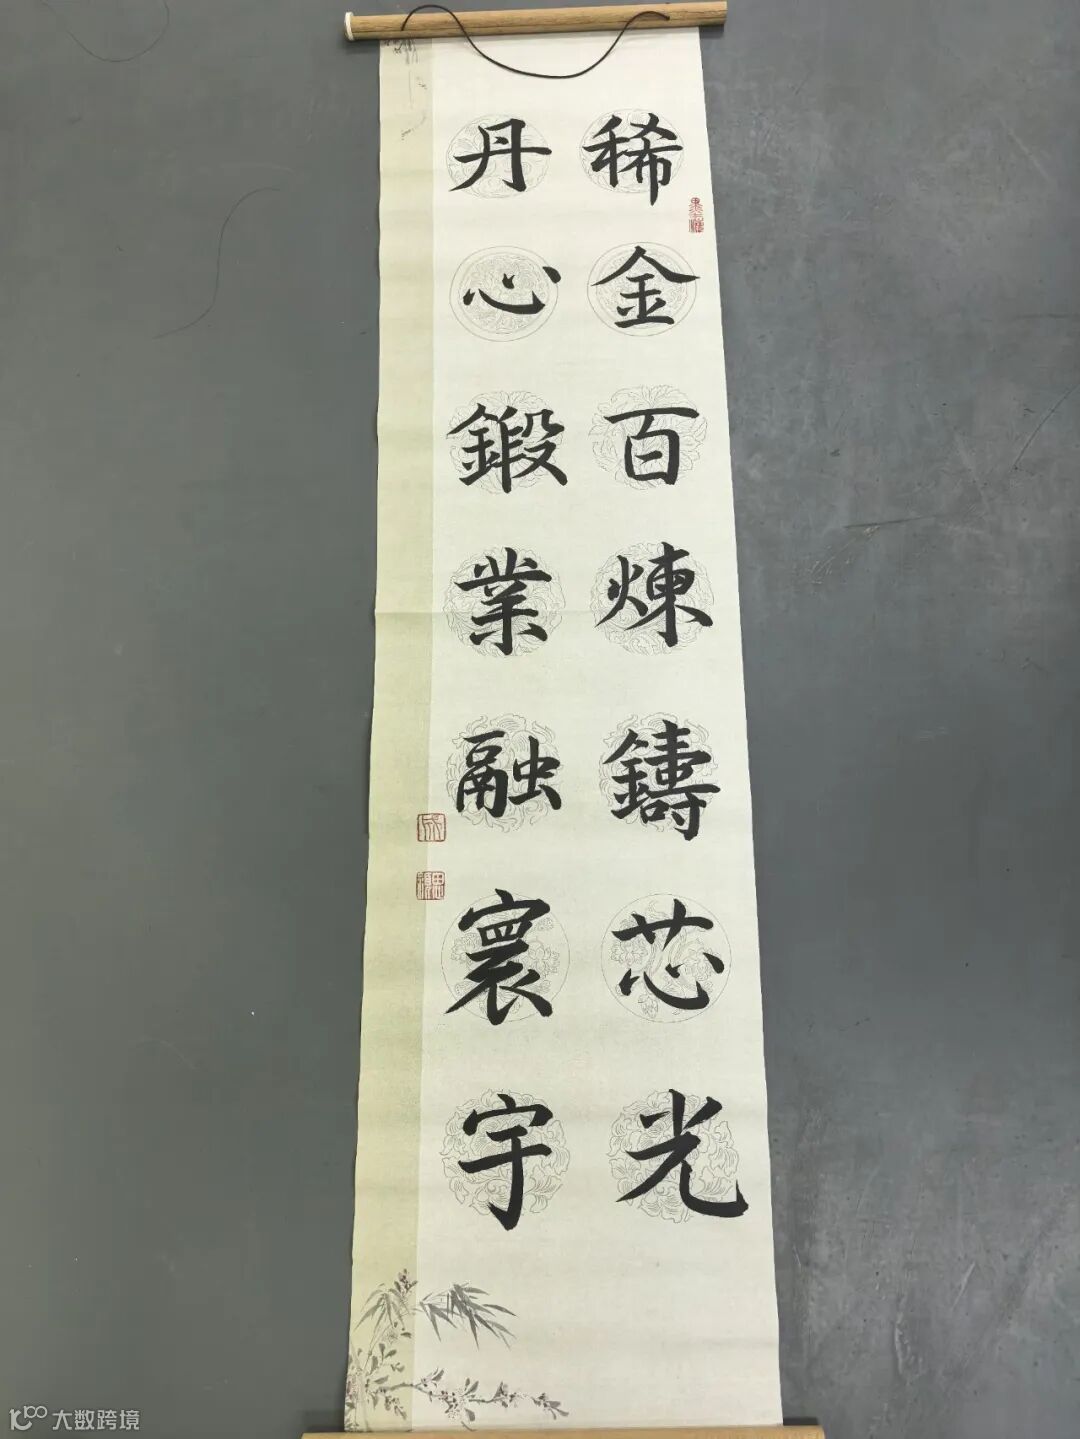 稀金百煉鑄芯光
丹心鍛業融寰宇
大数跨境